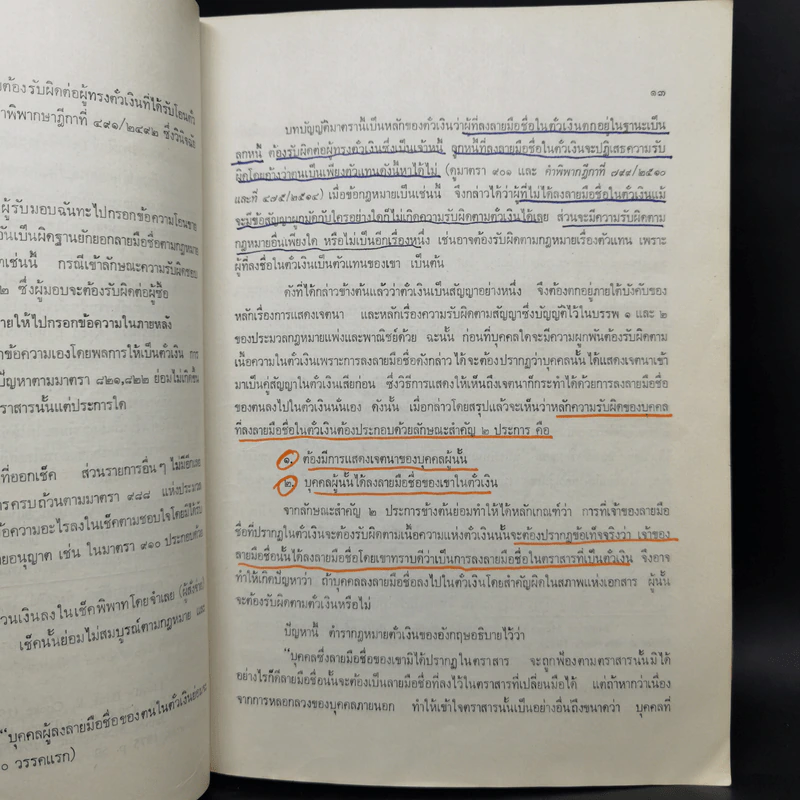 ต้องรับผิดต่อผู้ทรงตั๋วเงินที่ได้รับโอนตั๋ว
คำพิพากษาฎีกาที่ ๔๙๑/๒๔๙๒ ซึ่งวินิจฉัย
ผู้รับมอบฉันทะไปกรอกข้อความโอนขาย
อันเป็นผิดฐานยักยอกลายมือชื่อตามกฎหมาย
เช่นนี้ กรณีเข้าลักษณะความรับผิดชอบ
๒ ซึ่งผู้มอบจะต้องรับผิดต่อผู้ซื้อ
ายให้ไปกรอกข้อความในภายหลัง
ข้อความเองโดยพลการให้เป็นตั๋วเงิน การ
ปัญหาตามมาตรา ๘๒๑,๘๒๒ ย่อมไม่เกิดขึ้น
ราสารนั้นแต่ประการใด
ที่ออกเช็ค ส่วนรายการอื่นๆ ไม่มีอีกเลย
ารครบถ้วนตามมาตรา ๙๘๘ แห่งประมวล
ข้อความอะไรลงในเช็คตามชอบใจโดยมิได้รับ
ายอนุญาต เช่น ในมาตรา ๙๑๐ ประกอบด้วย
วนเงินลงในเช็คพิพาทโดยจำเลย (ผู้สั่งจ่าย)
เช็คนั้นย่อมไม่สมบูรณ์ตามกฎหมาย และ
"บุคคลผู้ลงลายมือชื่อของตนในตั๋วเงินย่อมจะ
๐ วรรคแรก)
๑๓
บทบัญญัติมาตรานี้เป็นหลักของตั๋วเงินว่าผู้ที่ลงลายมือชื่อในตั๋วเงินตกอยู่ในฐานะเป็น
ลูกหนี้ ต้องรับผิดต่อผู้ทรงตั๋วเงินซึ่งเป็นเจ้าหนี้ ลูกหนี้ที่ลงลายมือชื่อในตั๋วเงินจะปฏิเสธความรับ
ผิดโดยอ้างว่าตนเป็นเพียงตัวแทนดังนี้หาได้ไม่ (ดูมาตรา ๙๐๑ และ คำพิพากฎีกาที่ ๗๙๙/๒๕๑๐
และที่ ๔๗๕/๒๕๑๔) เมื่อข้อกฎหมายเป็นเช่นนี้ จึงกล่าวได้ว่าผู้ที่ไม่ได้ลงลายมือชื่อในตั๋วเงินแม้
จะมีข้อสัญญาผูกมัดกับใครอย่างใดก็ไม่เกิดความรับผิดตามตั๋วเงินได้เลย ส่วนจะมีความรับผิดตาม
กฎหมายอื่นเพียงใด หรือไม่เป็นอีกเรื่องหนึ่ง เช่นอาจต้องรับผิดตามกฎหมายเรื่องตัวแทน เพราะ
ผู้ที่ลงชื่อในตั๋วเงินเป็นตัวแทนของเขา เป็นต้น
ดังที่ได้กล่าวข้างต้นแล้วว่าตั๋วเงินเป็นสัญญาอย่างหนึ่ง จึงต้องตกอยู่ภายใต้บังคับของ
หลักเรื่องการแสดงเจตนา และหลักเรื่องความรับผิดตามสัญญาซึ่งบัญญัติไว้ในบรรพ ๑ และ ๒
ของประมวลกฎหมายแพ่งและพาณิชย์ด้วย ฉะนั้น ก่อนที่บุคคลใดจะมีความผูกพันต้องรับผิดตาม
เนื้อความในตั๋วเงินเพราะการลงลายมือชื่อดังกล่าว ได้จะต้องปรากฏว่าบุคคลนั้น ได้แสดงเจตนาเข้า
มาเป็นคู่สัญญาในตั๋วเงินเสียก่อน ซึ่งวิธีการแสดงให้เห็นถึงเจตนาก็กระทำได้ด้วยการลงลายมือชื่อ
ของตนลงไปในตั๋วเงินนั่นเอง ดังนั้น เมื่อกล่าวโดยสรุปแล้วจะเห็นว่าหลักความรับผิดของบุคคล
ที่ลงลายมือชื่อในตั๋วเงินต้องประกอบด้วยลักษณะสำคัญ ๒ ประการ คือ
๑. ต้องมีการแสดงเจตนาของบุคคลผู้นั้น
๒. บุคคลผู้นั้นได้ลงลายมือชื่อของเขาในตั๋วเงิน
จากลักษณะสำคัญ ๒ ประการข้างต้นย่อมทำให้ได้หลักเกณฑ์ว่า การที่เจ้าของลายมือ
ชื่อที่ปรากฏในตั๋วเงินจะต้องรับผิดตามเนื้อความแห่งตั๋วเงินนั้นจะต้องปรากฏข้อเท็จจริงว่า เจ้าของ
ลายมือชื่อนั้นได้ลงลายมือชื่อโดยเขาทราบดีว่าเป็นการลงลายมือชื่อในตราสารที่เป็นตั๋วเงิน จึงอาจ
ทำให้เกิดปัญหาว่า ถ้าบุคคลลงลายมือชื่อลงไปในตั๋วเงินโดยสำคัญผิดในสภาพแห่งเอกสาร ผู้นั้น
จะต้องรับผิดตามตั๋วเงินหรือไม่
ปัญหานี้ ตำรากฎหมายตั๋วเงินของอังกฤษอธิบายไว้ว่า
"บุคคลซึ่งลายมือชื่อของเขามิได้ปรากฏในตราสาร จะถูกฟ้องตามตราสารนั้นมิได้
อย่างไรก็ดีลายมือชื่อนั้นจะต้องเป็นลายมือชื่อที่ลงไว้ในตราสารที่เปลี่ยนมือได้ แต่ถ้าหากว่าเนื่อง
จากการหลอกลวงของบุคคลภายนอก ทำให้เข้าใจตราสารนั้นเป็นอย่างอื่นถึงขนาดว่า บุคคลที่